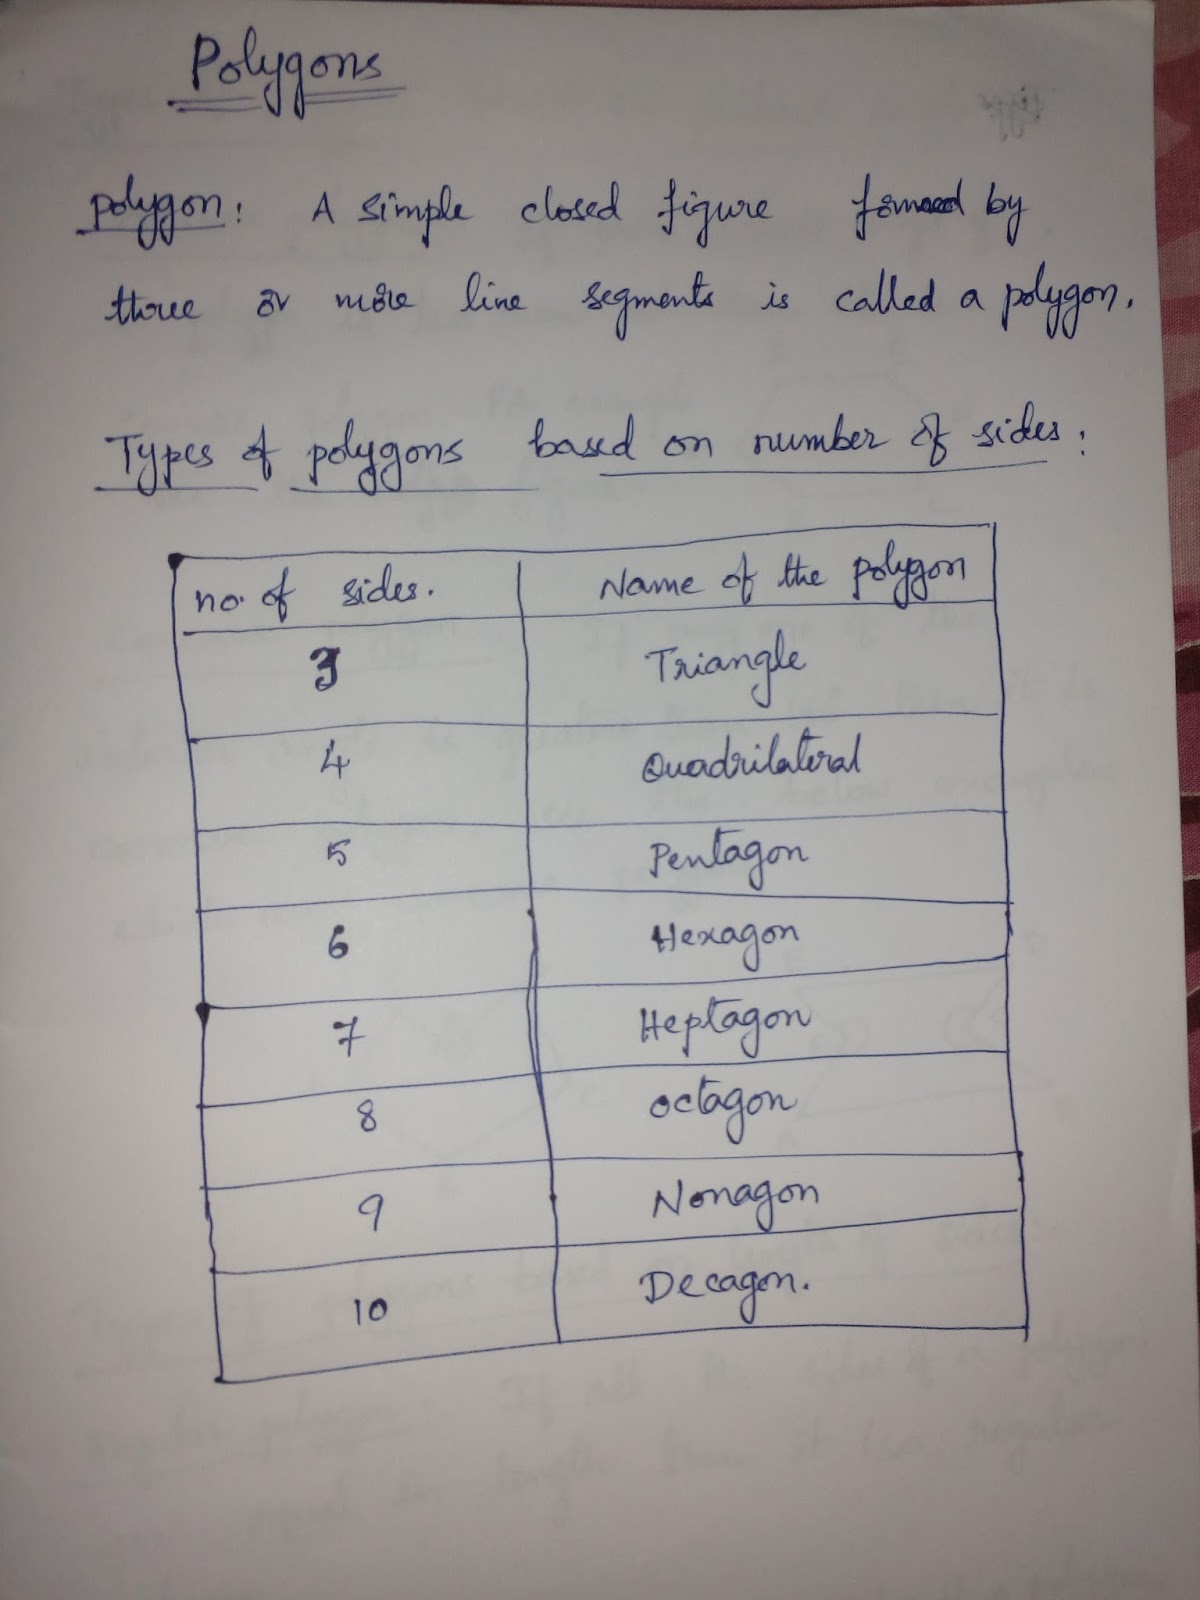 Polygons
polygon: A simple closed figure formed by
three or more line segments is called a polygon.
Types of polygons based on number of sides:
no. of sides. Name of the polygon
3 Triangle
4 Quadrilateral
5 Pentagon
6 Hexagon
7 Heptagon
8 octagon
9 Nonagon
10 Decagon.